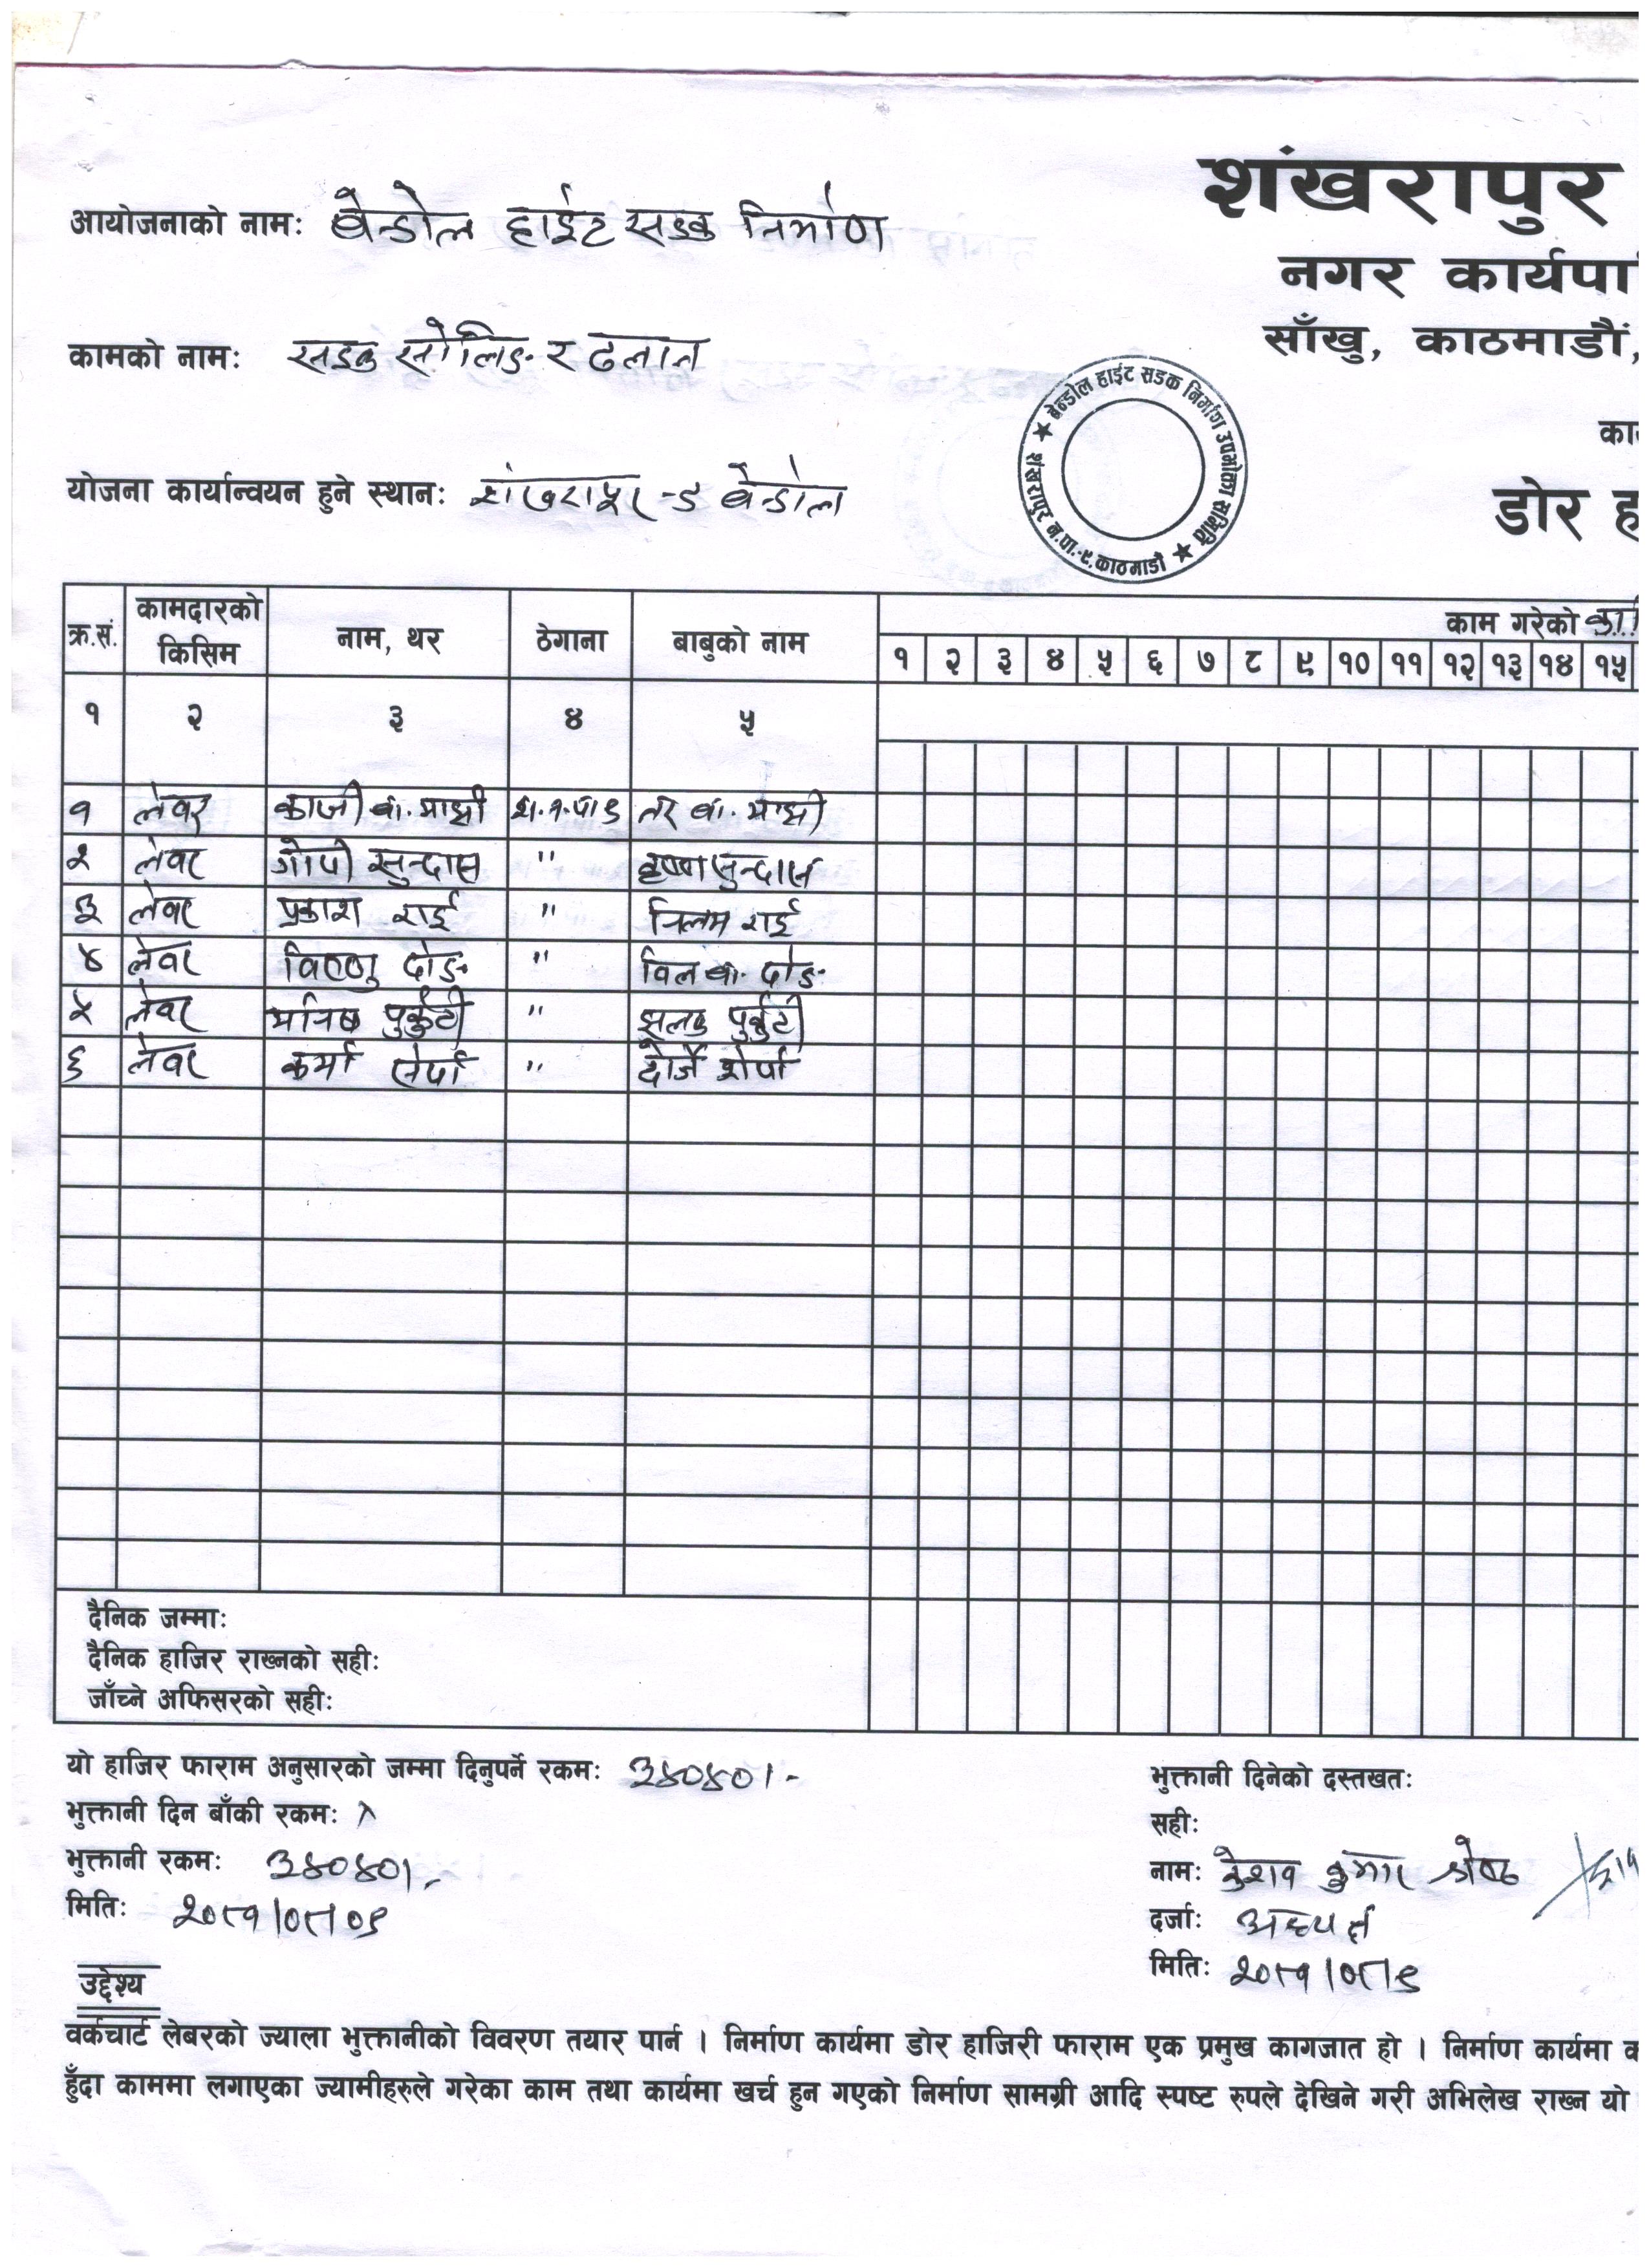 शंखरापुर
नगर कार्यपा
साँखु, काठमाडौं,
आयोजनाको नामः बेन्डोल हाईट सडक निर्माण
कामको नामः सडक सोलिङ र ढलान
योजना कार्यान्वयन हुने स्थानः शंखरापुर -९ बेन्डोल
★ बेन्डोल हाईट सडक निर्माण उपभोक्ता समिति ★ शंखरापुर न.पा.-९, काठमाडौं
डोर ह
क्र.सं. कामदारको किसिम नाम, थर ठेगाना बाबुको नाम काम गरेको
१ २ ३ ४ ५ ६ ७ ८ ९ १० ११ १२ १३ १४ १५
१ २ ३ ४ ५
१ लेवर काजी बा. माझी श.न.पा ९ तर बा. माझी
२ लेवर गोपी सुन्दास " कृष्ण सुन्दास
३ लेवर प्रकाश राई " राई
४ लेवर विष्णु दोङ " विल बा. दोङ
५ लेवर "
६ लेवर कर्मा शेर्पा " दोर्जे शेर्पा
दैनिक जम्माः
दैनिक हाजिर राख्नको सहीः
जाँच्ने अफिसरको सहीः
यो हाजिर फाराम अनुसारको जम्मा दिनुपर्ने रकमः ३४०४०।-
भुक्तानी दिन बाँकी रकमः ×
भुक्तानी रकमः ३४०४०।-
मितिः २०८१।०८।०९
भुक्तानी दिनेको दस्तखतः
सहीः
नामः केशव कुमार श्रेष्ठ
दर्जाः अध्यक्ष
मितिः २०८१।०८।९
उद्देश्य
वर्कचार्ट लेबरको ज्याला भुक्तानीको विवरण तयार पार्न । निर्माण कार्यमा डोर हाजिरी फाराम एक प्रमुख कागजात हो । निर्माण कार्यमा
हुँदा काममा लगाएका ज्यामीहरुले गरेका काम तथा कार्यमा खर्च हुन गएको निर्माण सामग्री आदि स्पष्ट रुपले देखिने गरी अभिलेख राख्न यो